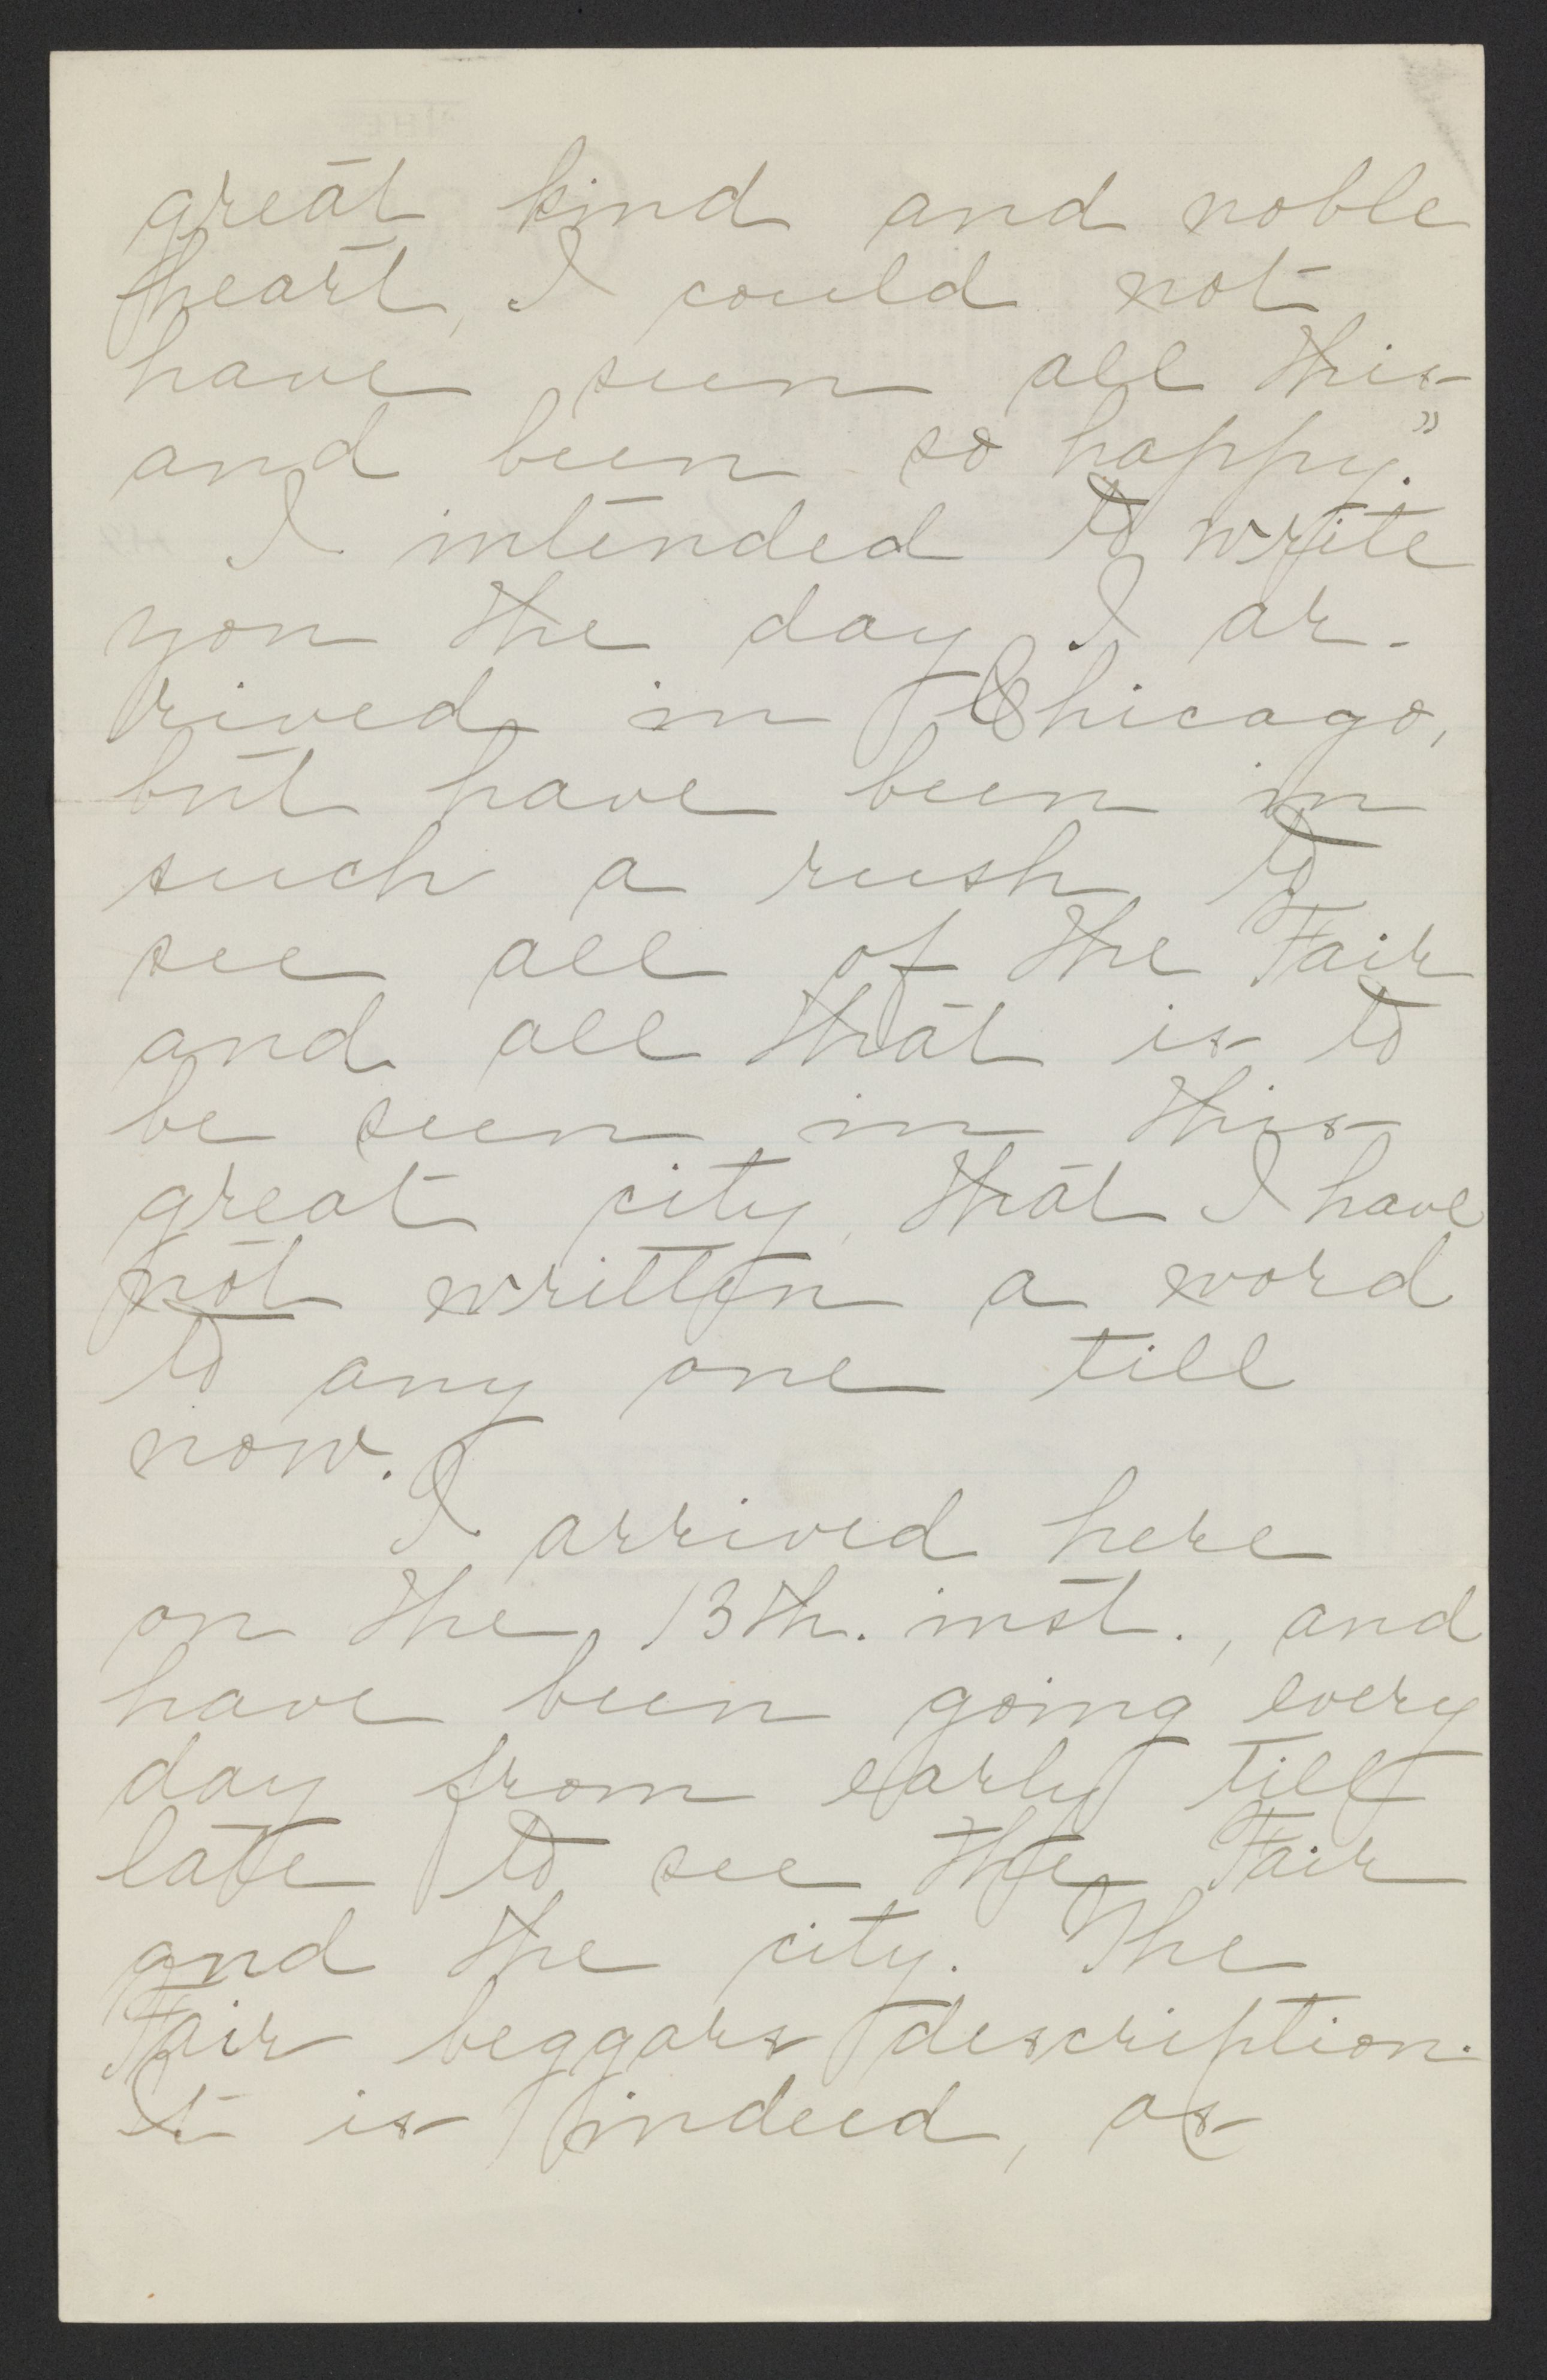 great kind and noble
heart, I could not
have seen all this
and been so happy."
I intended to write
you the day I ar-
rived in Chicago,
but have been in
such a rush to
see all of the Fair
and all that is to
be seen in this
great city, that I have
not written a word
to any one till
now.
I arrived here
on the 13th. inst., and
have been going every
day from early till
late to see the Fair
and the city. The
Fair beggars description.
It is indeed, as